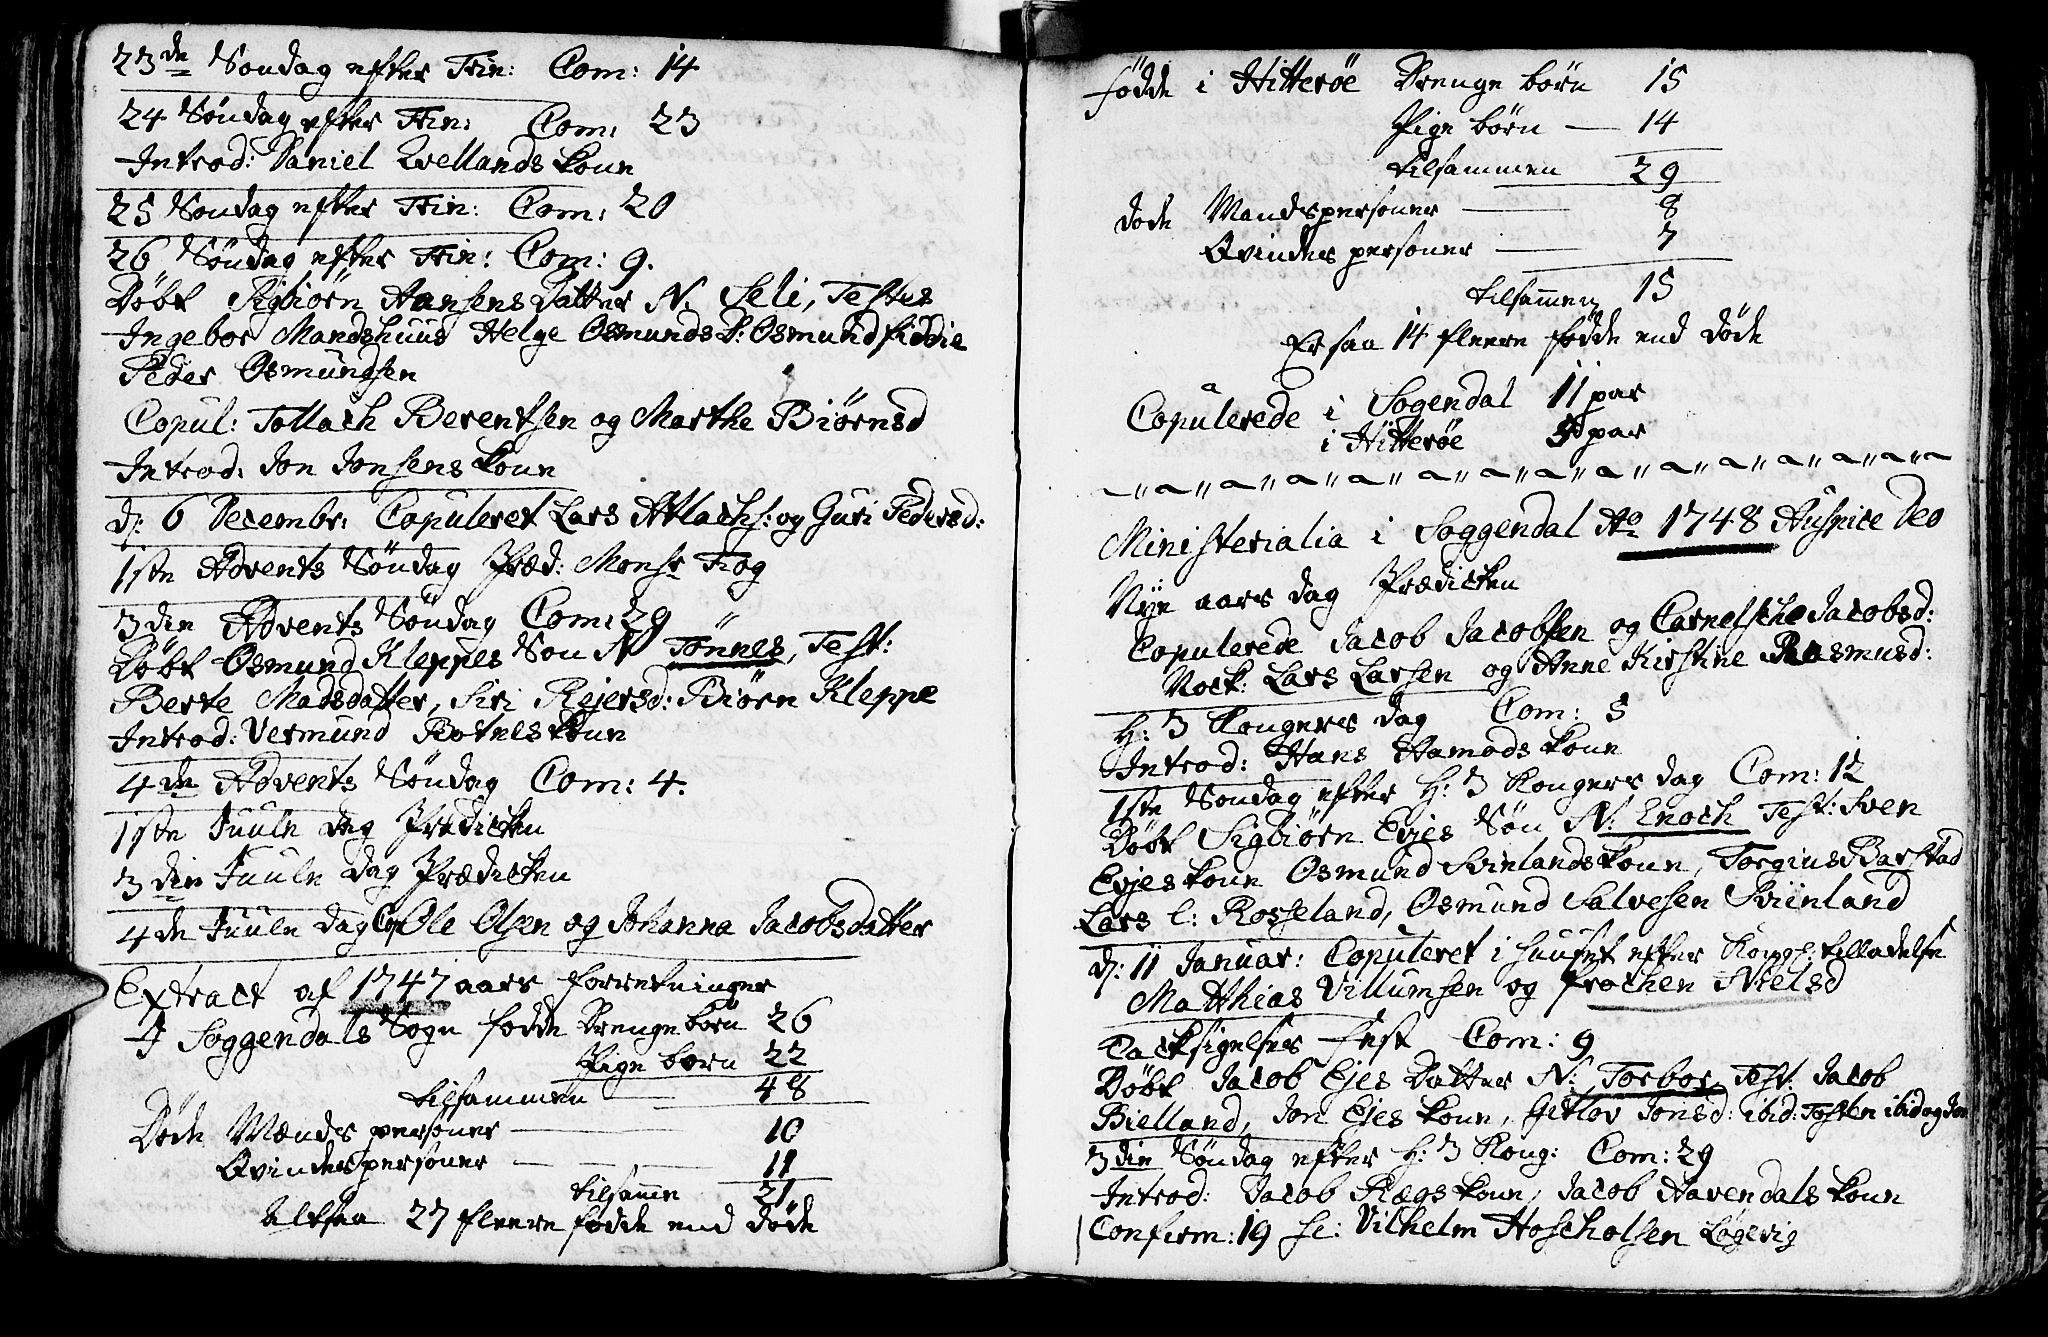 23de Søndag efter Trin: Com: 14
24 Søndag efter Trin: Com: 23
Introd: Daniel Qvellands Kone
25 Søndag efter Trin: Com: 20
26 Søndag efter Trin: Com: 9.
Døbt Sigbiørn Hansens Datter N. Seli, Testes
Ingebor Mandshuus Helge Osmunds D: Osmund fidie
Peder Osmundsen
Copul: Tollach Berentsen og Marthe Biørnsd
Introd: Jon Jonsens Kone
d: 6 Decembr: Copuleret Lars Atlachs: og Guri Pedersd:
1ste Advents Søndag Præd: Monsr Fog
3die Advents Søndag Com: 29
Døbt Osmund Kleppes Søn N Tönnes, Test:
Berte Madsdatter, Siri Rejersd: Biørn Kleppe
Introd: Vermund Botnes Kone
4de Advents Søndag Com: 4.
1ste Juule dag Prædicken
3die Juule Dag Prædicken
4de Juule dag Cop Ole Olsen og Johanna Jacobsdatter
Extract af 1747 aars forretninger
I Soggendals Sogn fødde Drenge børn 26
Pige børn 22
tilsammen 48
Døde Mænds personer 10
Qvindespersoner 11
tilsamme 21
Altsaa 27 fleere fødde end døde
fødde i Hitterøe Drenge børn 15
Pige børn — 14
tilsammen 29
døde Mandspersoner 8
Qvindes personer 7
tilsammen 15
Er saa 14 fleere fødde end døde
Copulerede i Sogendal 11 par
i Hitterøe par
Ministerialia i Soggendal Ao 1748 Auspice Deo
Nye aars dag Prædicken
Copulerede Jacob Jacobsen og Cornelsche Jacobsd:
Nock: Lars Larsen og Anne Kirstine Rasmusd:
H: 3 Kongers dag Com: 5
Introd: Hans Aamods Kone
1ste Søndag efter H: 3 Kongers dag Com: 12
Døbt Sigbiørn Evjes Søn N: Enoch Test: Sven
Evjes Kone Osmund Svinlands Kone, Torgius Barstad
Lars l: Rosseland, Osmund Salvesen Sviinland
d: 11 Januar: Copuleret i huuset efter Kongl: tilladelse
Matthias Villumsen og frochen Nielsd
Tacksigelses fest Com: 9
Døbt Jacob Ejes Datter N: Torbor Test: Jacob
Bielland, Jon Ejes Kone, Getlov Jonsd: ibid: Tosten ibid og Jon
3die Søndag efter H: 3 Kong: Com: 29
Introd: Jacob Rægs Kone, Jacob Aavendals Kone
Confirm: 19 sc: Vilhelm Hoscholsen Løgevig